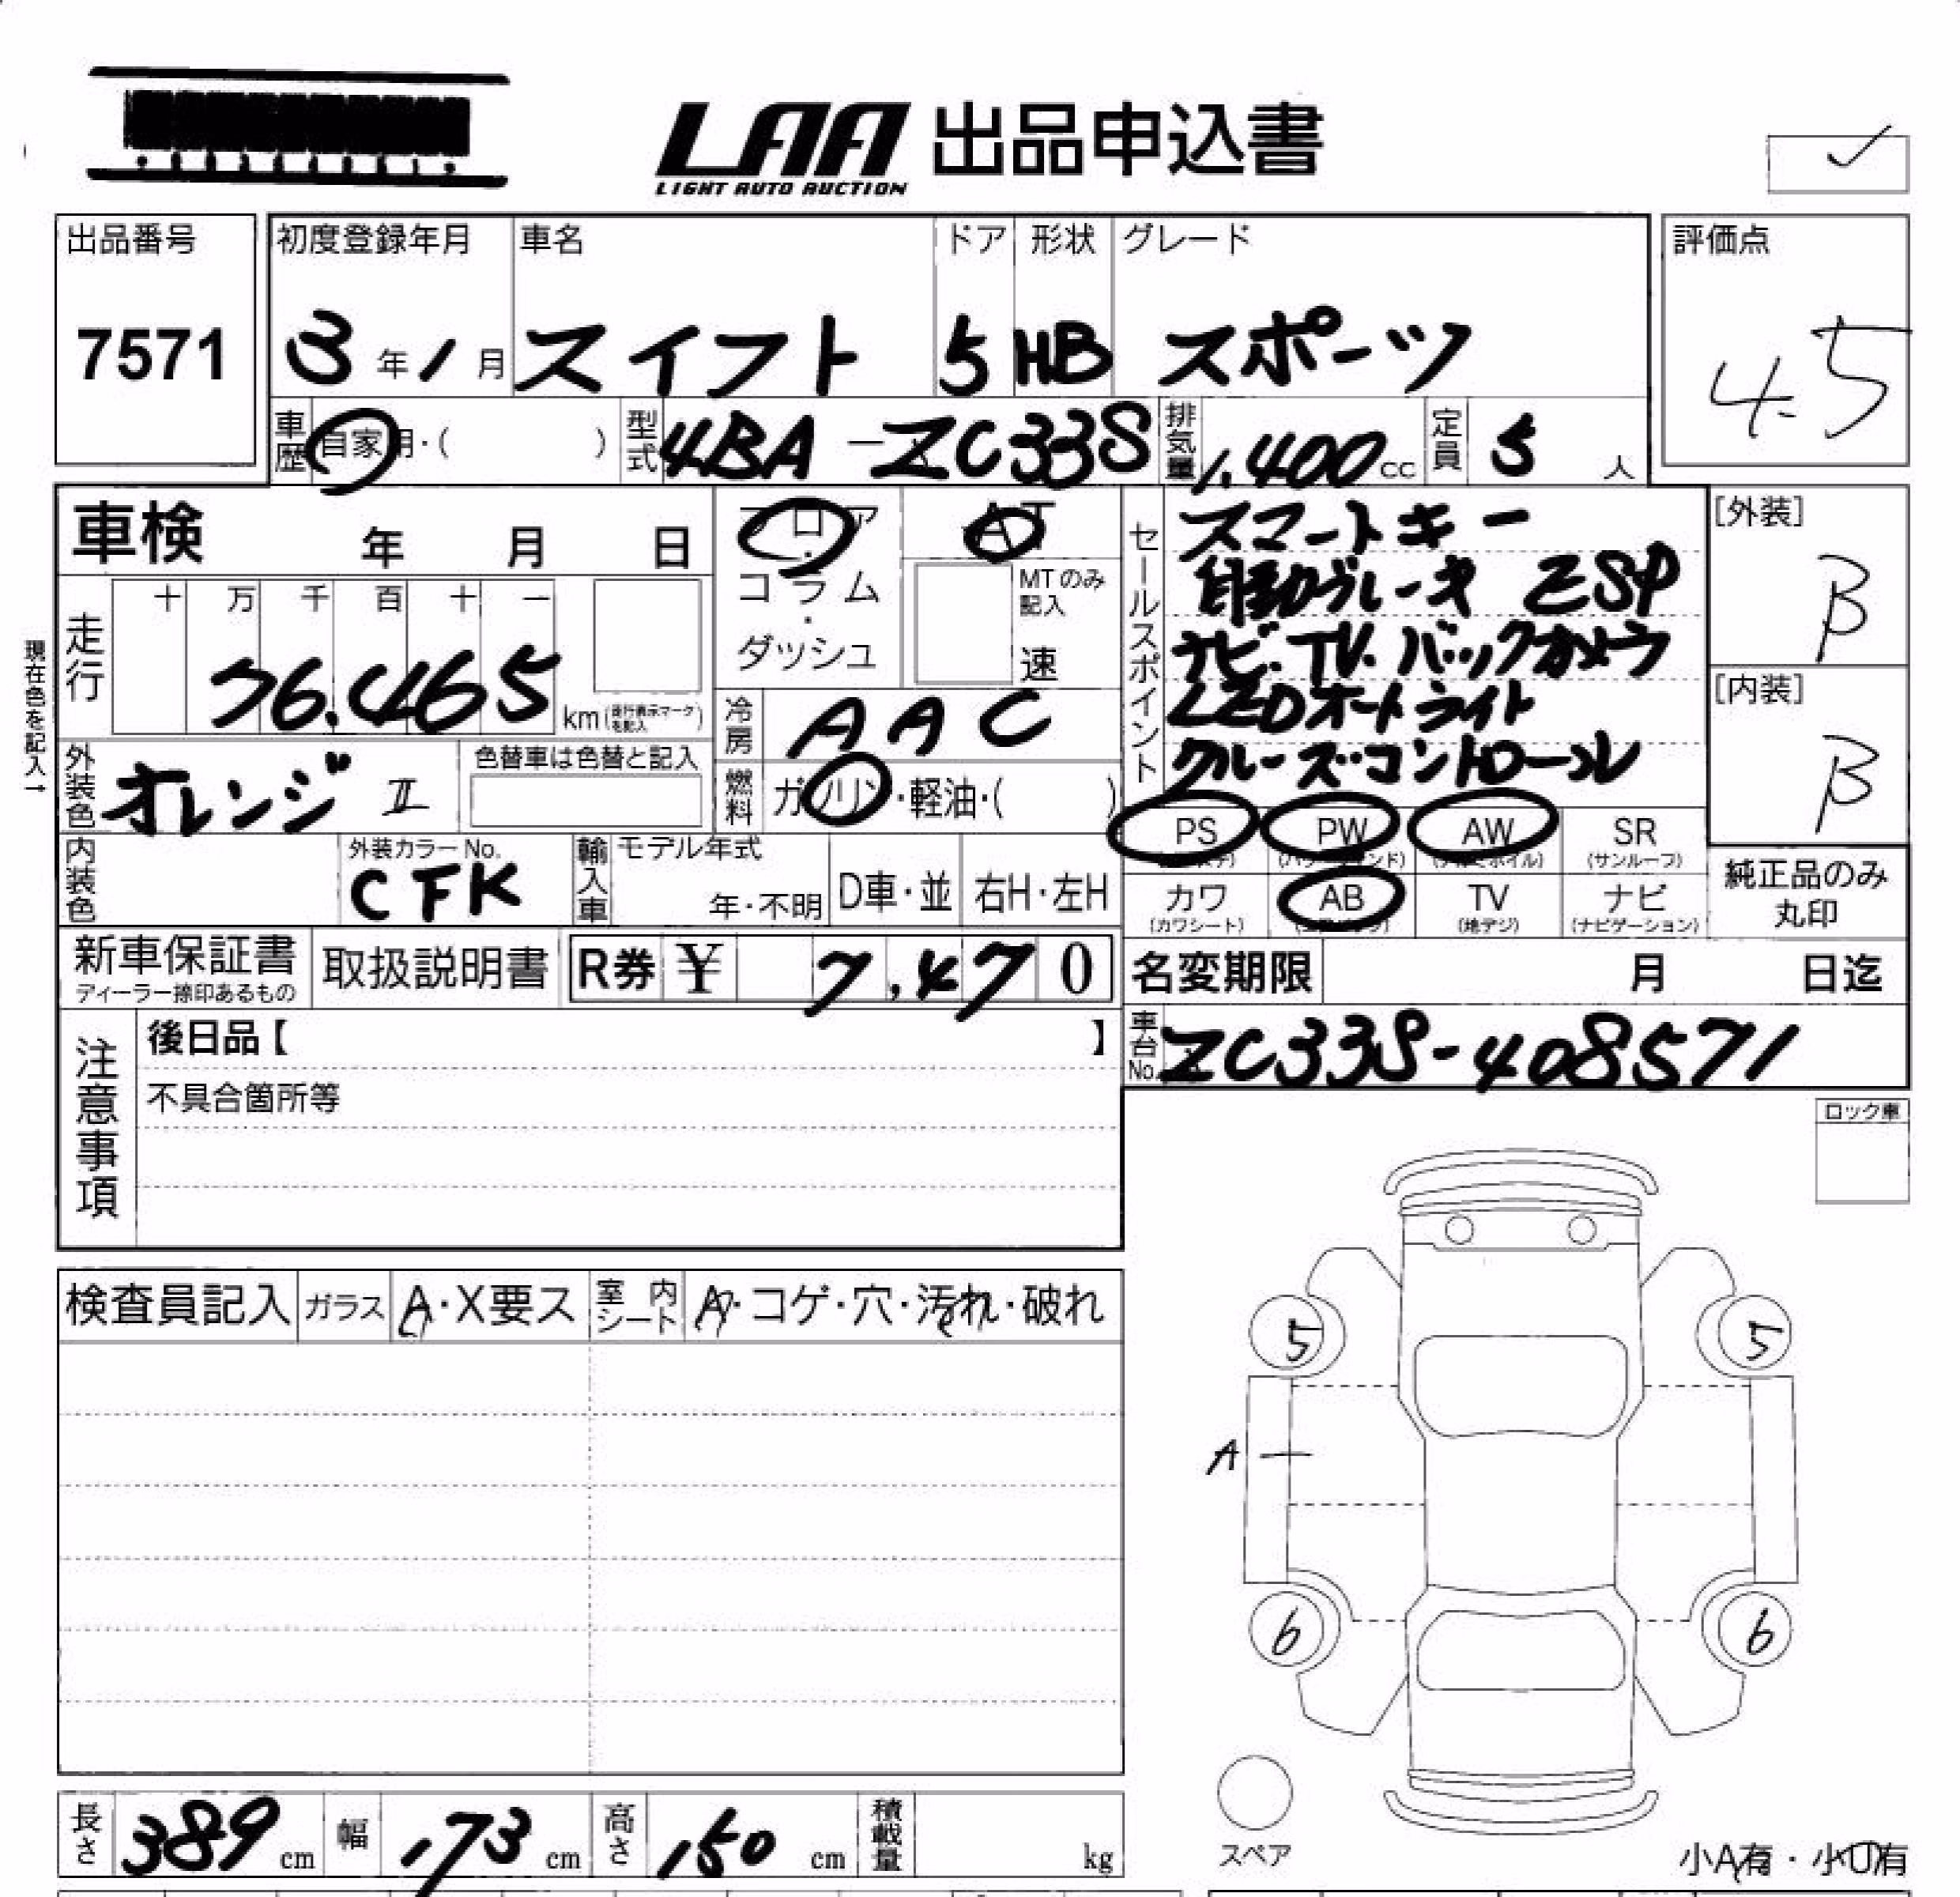 LAA 出品申込書
LIGHT AUTO AUCTION
出品番号
7571
初度登録年月 車名 ドア 形状 グレード
3年1月 スイフト 5 HB スポーツ
評価点
4.5
車歴 自家用・( ) 型式 4BA-ZC33S 排気量 1,400cc 定員 5人
車検 年 月 日
フロア・コラム・ダッシュ
AT
MTのみ記入
速
セールスポイント
スマートキー
自動ブレーキ ESP
ナビ.TV.バックカメラ
LEDオートライト
クルーズコントロール
[外装]
B
[内装]
B
現在色を記入→
走行 十 万 千 百 十 一
76,465 km(走行表示マークを記入)
冷房 AAC
外装色 オレンジII
色替車は色替と記入
燃料 ガソリン・軽油・( )
PS PW AW SR
(サンルーフ)
カワ AB TV ナビ
(カワシート) (地デジ) (ナビゲーション)
純正品のみ
丸印
内装色 外装カラーNo. CFK
輸入車 モデル年式 年・不明 D車・並 右H・左H
新車保証書 取扱説明書 R券 ¥ 7,470
ディーラー捺印あるもの
名変期限 月 日迄
車台No. ZC33S-408571
注意事項
後日品【 】
不具合箇所等
ロック車
検査員記入 ガラス A・X要ス 室内シート A・コゲ・穴・汚れ・破れ
5 5
A
6 6
スペア
小A有・小U有
長さ 389cm 幅 173cm 高さ 150cm 積載量 kg